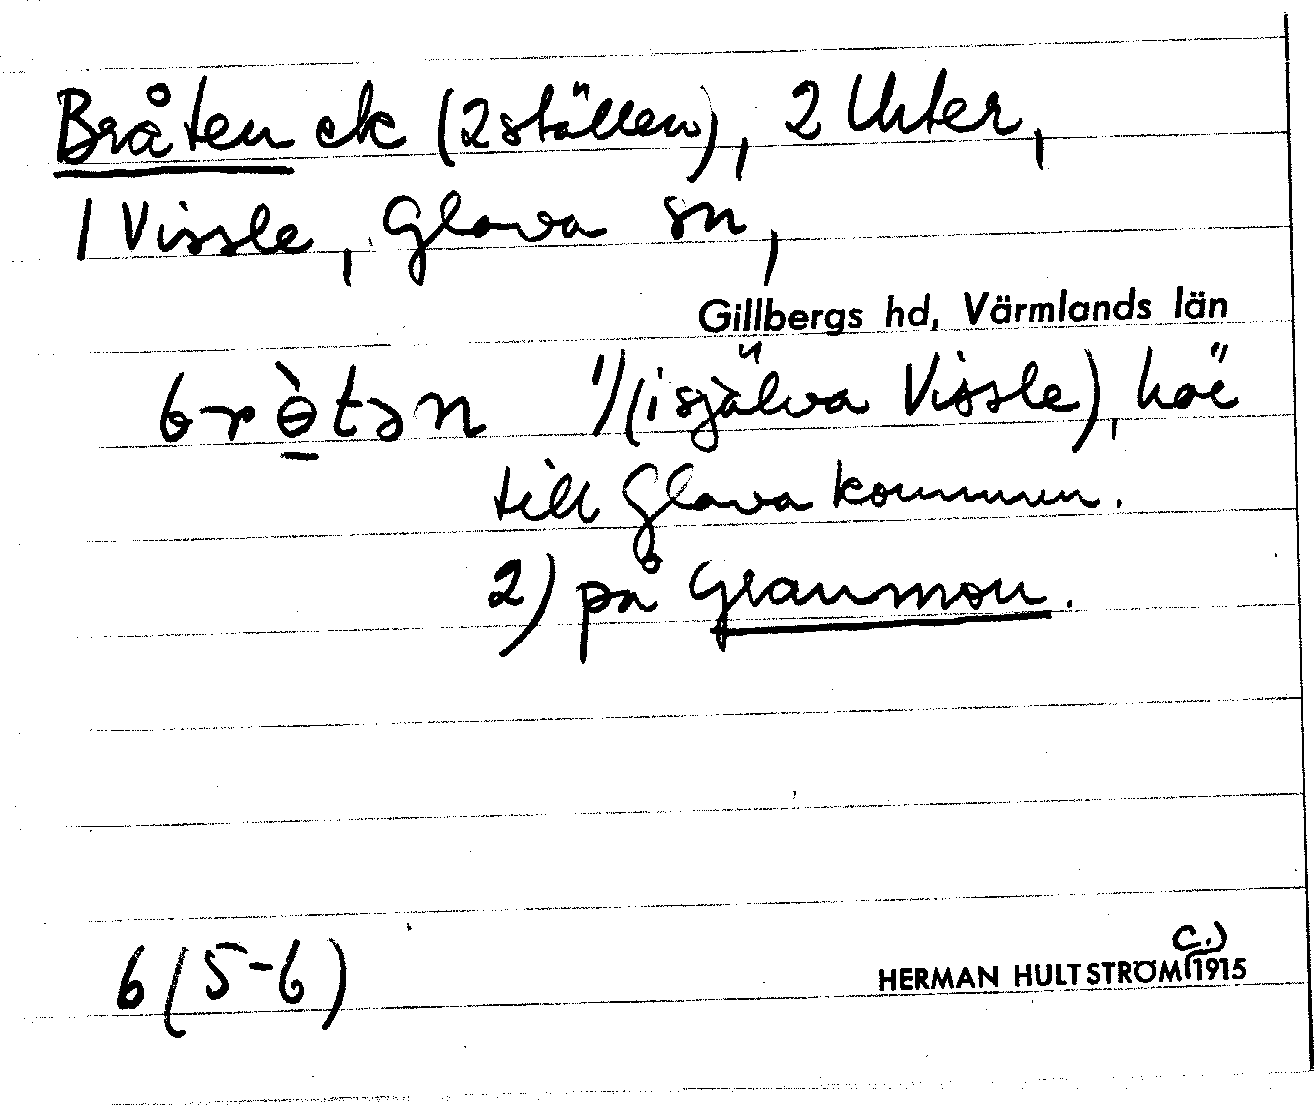 Bråten ck (2 ställen), 2 Uhter,
1 Vissle, Glava sn,
Gillbergs hd, Värmlands län
brə̀tən 1) (i själva Vissle), hör
till Glava kommun.
2) på Granmon.
6 (5-6)
HERMAN HULTSTRÖM (c.) 1915